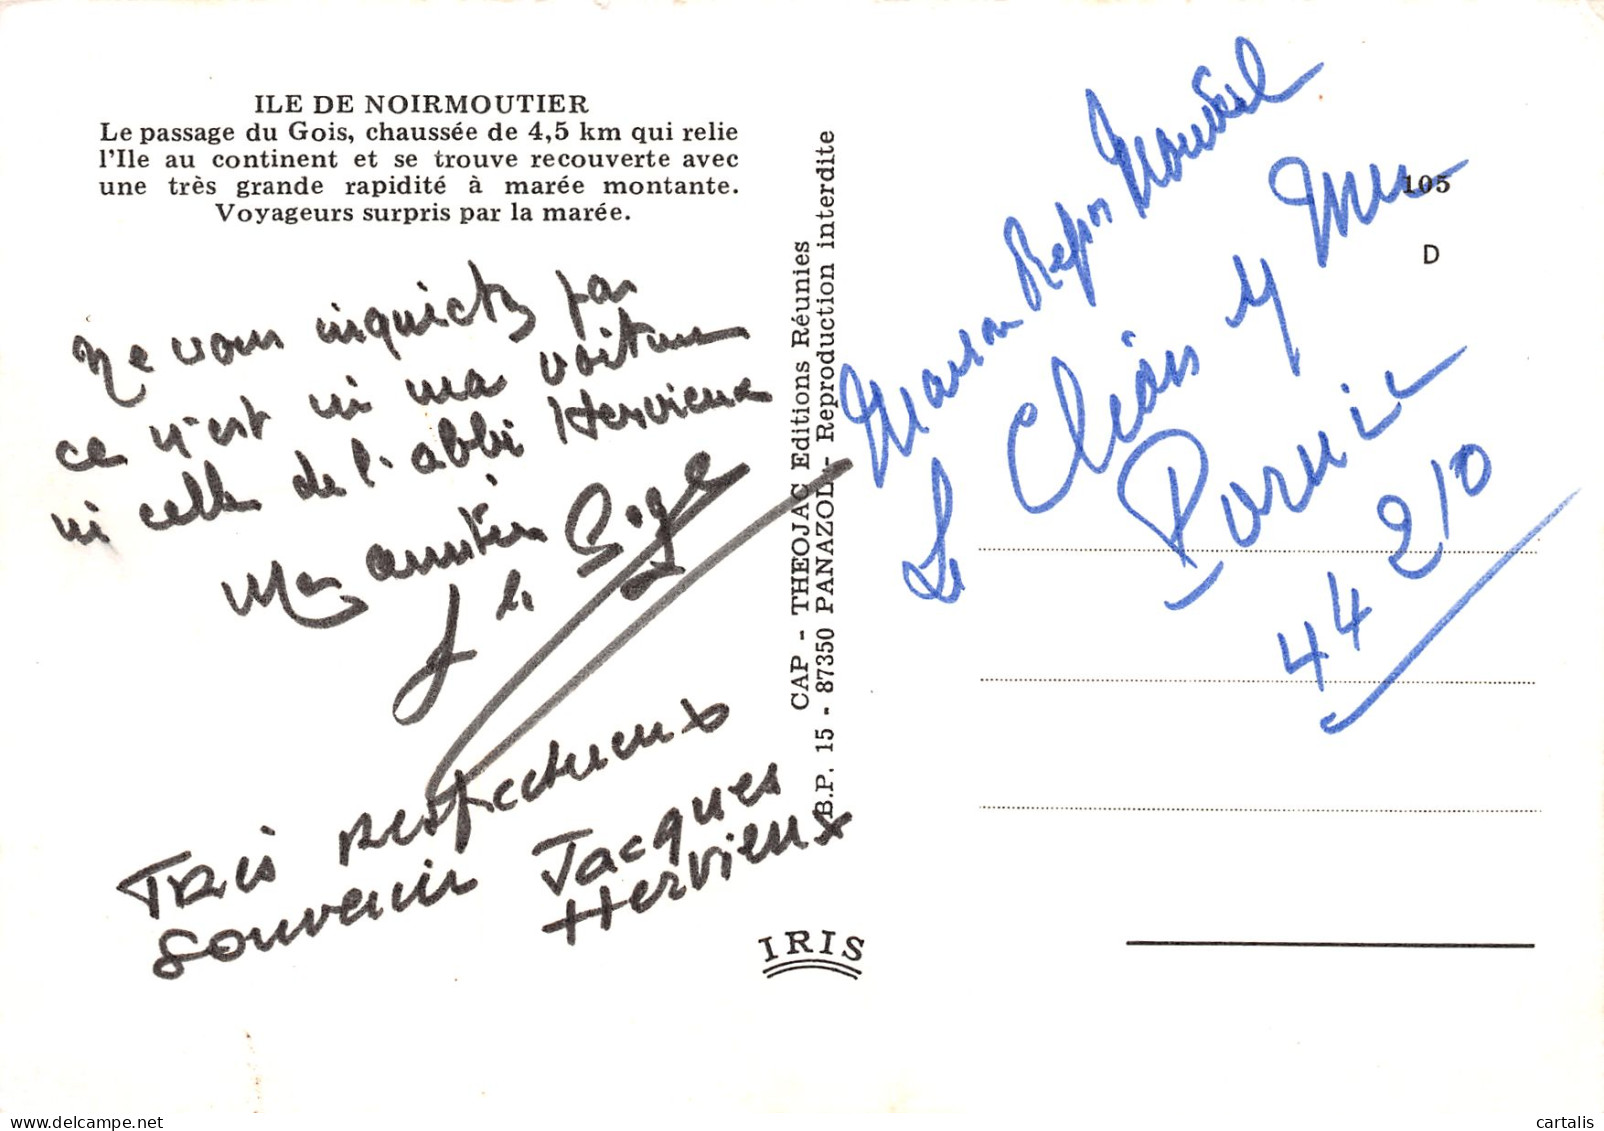 ILE DE NOIRMOUTIER
Le passage du Gois, chaussée de 4,5 km qui relie
l'Ile au continent et se trouve recouverte avec
une très grande rapidité à marée montante.
Voyageurs surpris par la marée.
Ne vous inquietez pas
ce n'est ni ma voiture
ni celle de l'abbé Hervieux
Mes amitiés
J le
Très respectueux
souvenir Jacques
Hervieux
CAP - THEOJAC Editions Réunies
B.P. 15 - 87350 PANAZOL - Reproduction interdite
IRIS
105
D
Maison Repos
Le Clion s/ Mer
Pornic
44 210
delcampe.net
cartalis